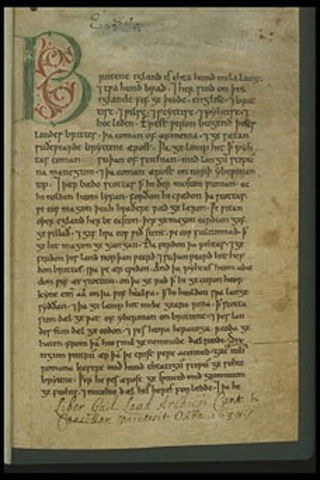 Brittene igland is ehta hund mila lang.
7 twa hund brad. 7 her sind on þis
iglande fif geþeode. englisc. 7 brit
tisc. 7 wilsc. 7 scyttisc. 7 pyhtisc. 7
boc leden. Erest weron bugend þises
landes brittes. þa coman of armenia. 7 gesætan
suðewearde bryttene ærost. Þa gelamp hit ꝥ pyh
tas coman suþan of scithian. mid langū scipū
na manegum. 7 þa coman ærost on norþ ybernian
up. 7 þær bædo scottas ꝥ hi ðer moston wunian. ac
hi noldan heom lyfan. forðan hi cwædon þa scottas.
we eow magon þeah hwaðere ræd gelæron. We witan
oþer egland her be easton. þer ge magon eardian gif
ge willað. 7 gif hwa eow wiðstent. we eow fultumiað. ꝥ
ge hit magon gegangan. Ða ferdon þa pihtas. 7 ge
ferdon þis land norþan weard. 7 suþan weard hit hef
don brittas. swa we ær cwedon. And þa pyhtas heom abæ
don wif æt scottum. on þa gerad ꝥ hi gecuron heora
kyne cinn aa on þa wif healfa. ꝥ hi heoldon swa lange
syððan. 7 þa gelamp hit imbe geara rina. ꝥ scotta
sum dæl gewat of ybernian on brittene. 7 þes lan
des sum dæl geeodon. 7 wes heora heratoga reoda ge
haten. from þā heo sind genemnode dæl reodi. Six
tigum wintrum ær þam þe crist were acenned. gaius iulius
romana kasere mid hund ehtatigum scipum gesohte
brytene. Þer he wes ærost geswenced mid grimmum
gefeohte. 7 micelne dæl his heres forlædde. 7 þa he
Liber Guil. Laud Archiepi Cant. &
Cancellar. Universit. Oxon. 1638